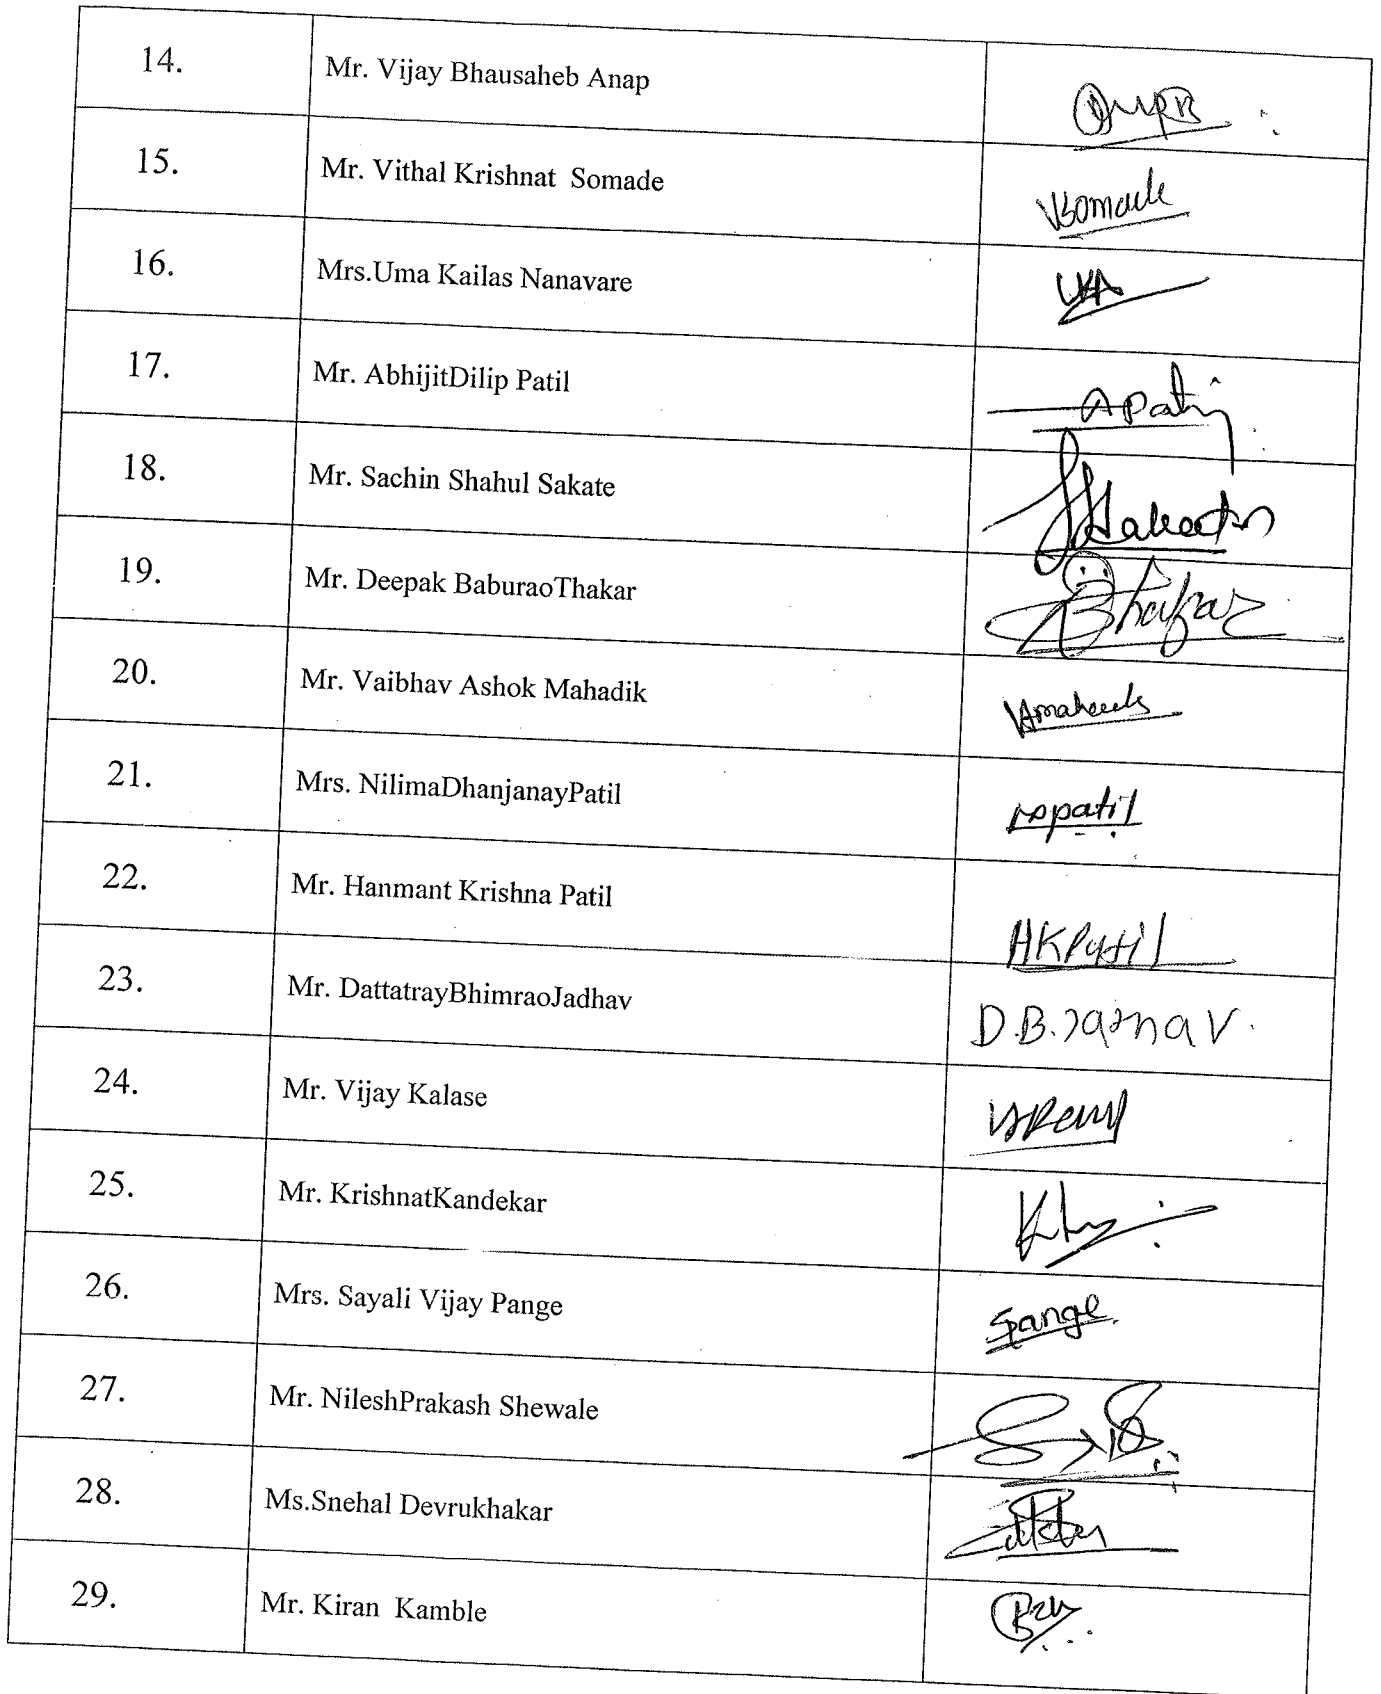 14. Mr. Vijay Bhausaheb Anap
15. Mr. Vithal Krishnat Somade VSomade
16. Mrs.Uma Kailas Nanavare
17. Mr. AbhijitDilip Patil APatil
18. Mr. Sachin Shahul Sakate
19. Mr. Deepak BaburaoThakar
20. Mr. Vaibhav Ashok Mahadik
21. Mrs. NilimaDhanjanayPatil NDPatil
22. Mr. Hanmant Krishna Patil HKPatil
23. Mr. DattatrayBhimraoJadhav D.B.Jadhav.
24. Mr. Vijay Kalase
25. Mr. KrishnatKandekar
26. Mrs. Sayali Vijay Pange Spange
27. Mr. NileshPrakash Shewale
28. Ms.Snehal Devrukhakar
29. Mr. Kiran Kamble